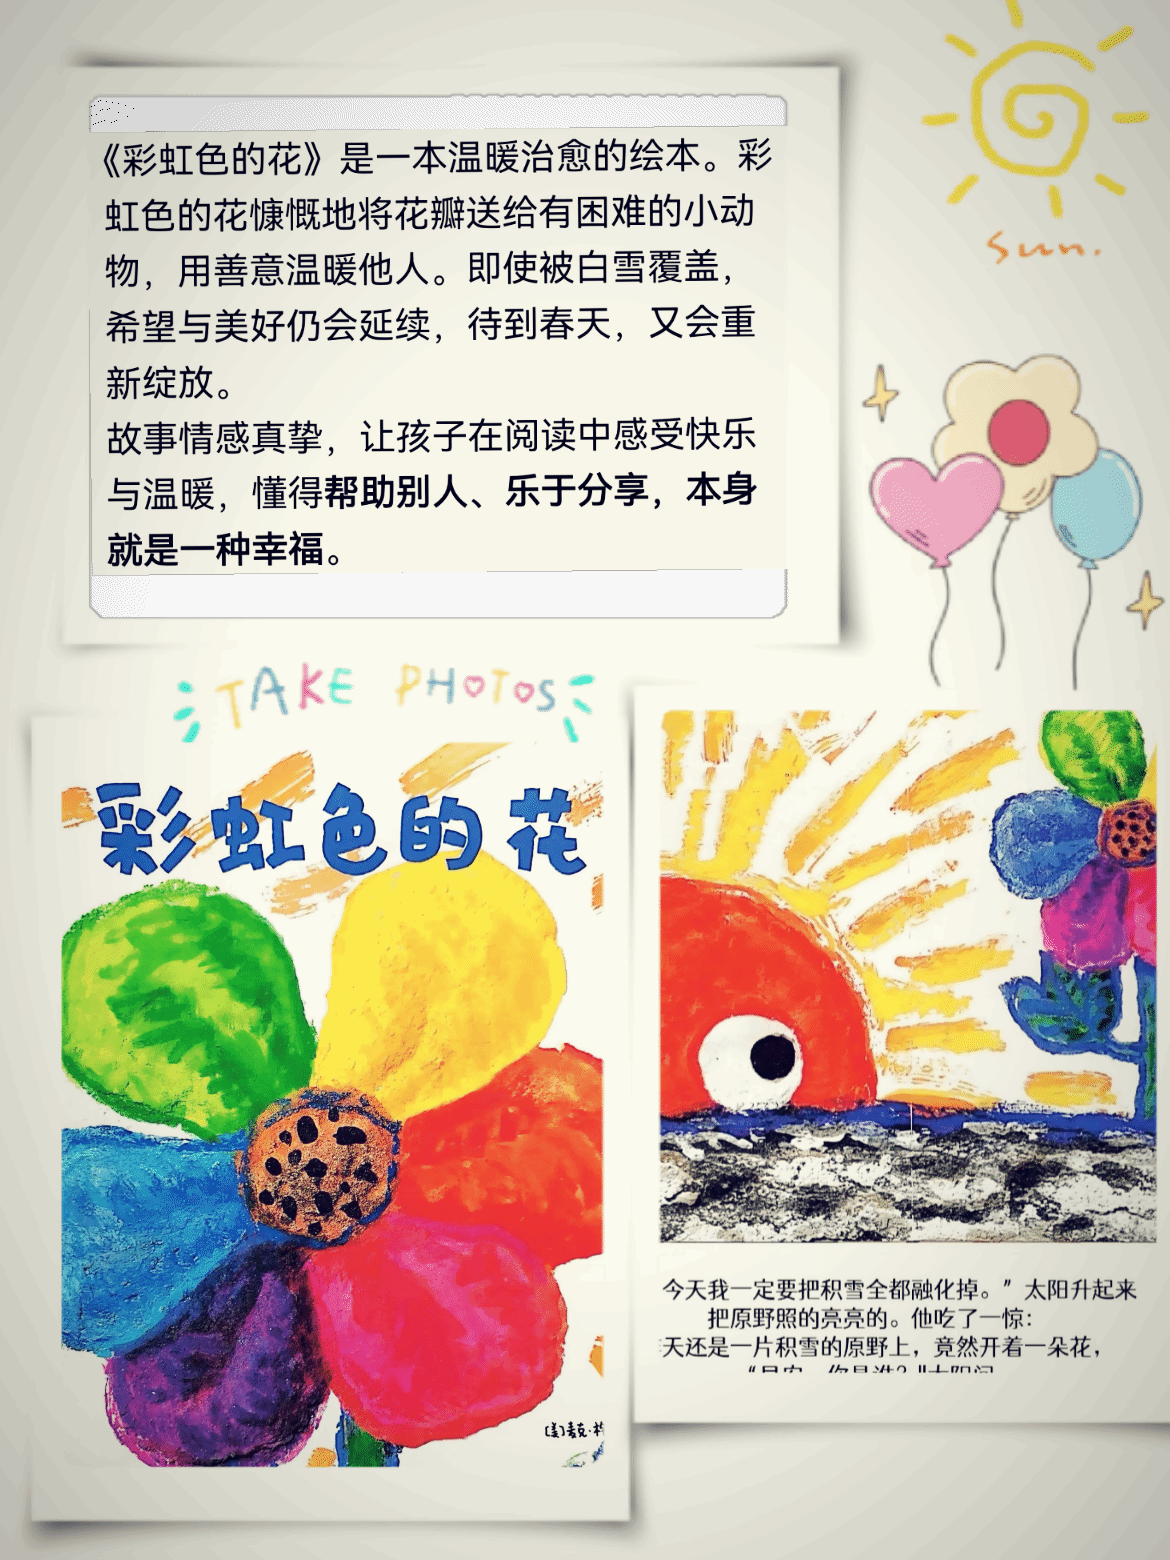 sun.
《彩虹色的花》是一本温暖治愈的绘本。彩
虹色的花慷慨地将花瓣送给有困难的小动
物，用善意温暖他人。即使被白雪覆盖，
希望与美好仍会延续，待到春天，又会重
新绽放。
故事情感真挚，让孩子在阅读中感受快乐
与温暖，懂得帮助别人、乐于分享，本身
就是一种幸福。
TAKE PHOTOS
彩虹色的花
[美]麦克·
今天我一定要把积雪全都融化掉。”太阳升起来
把原野照的亮亮的。他吃了一惊：
天还是一片积雪的原野上，竟然开着一朵花，